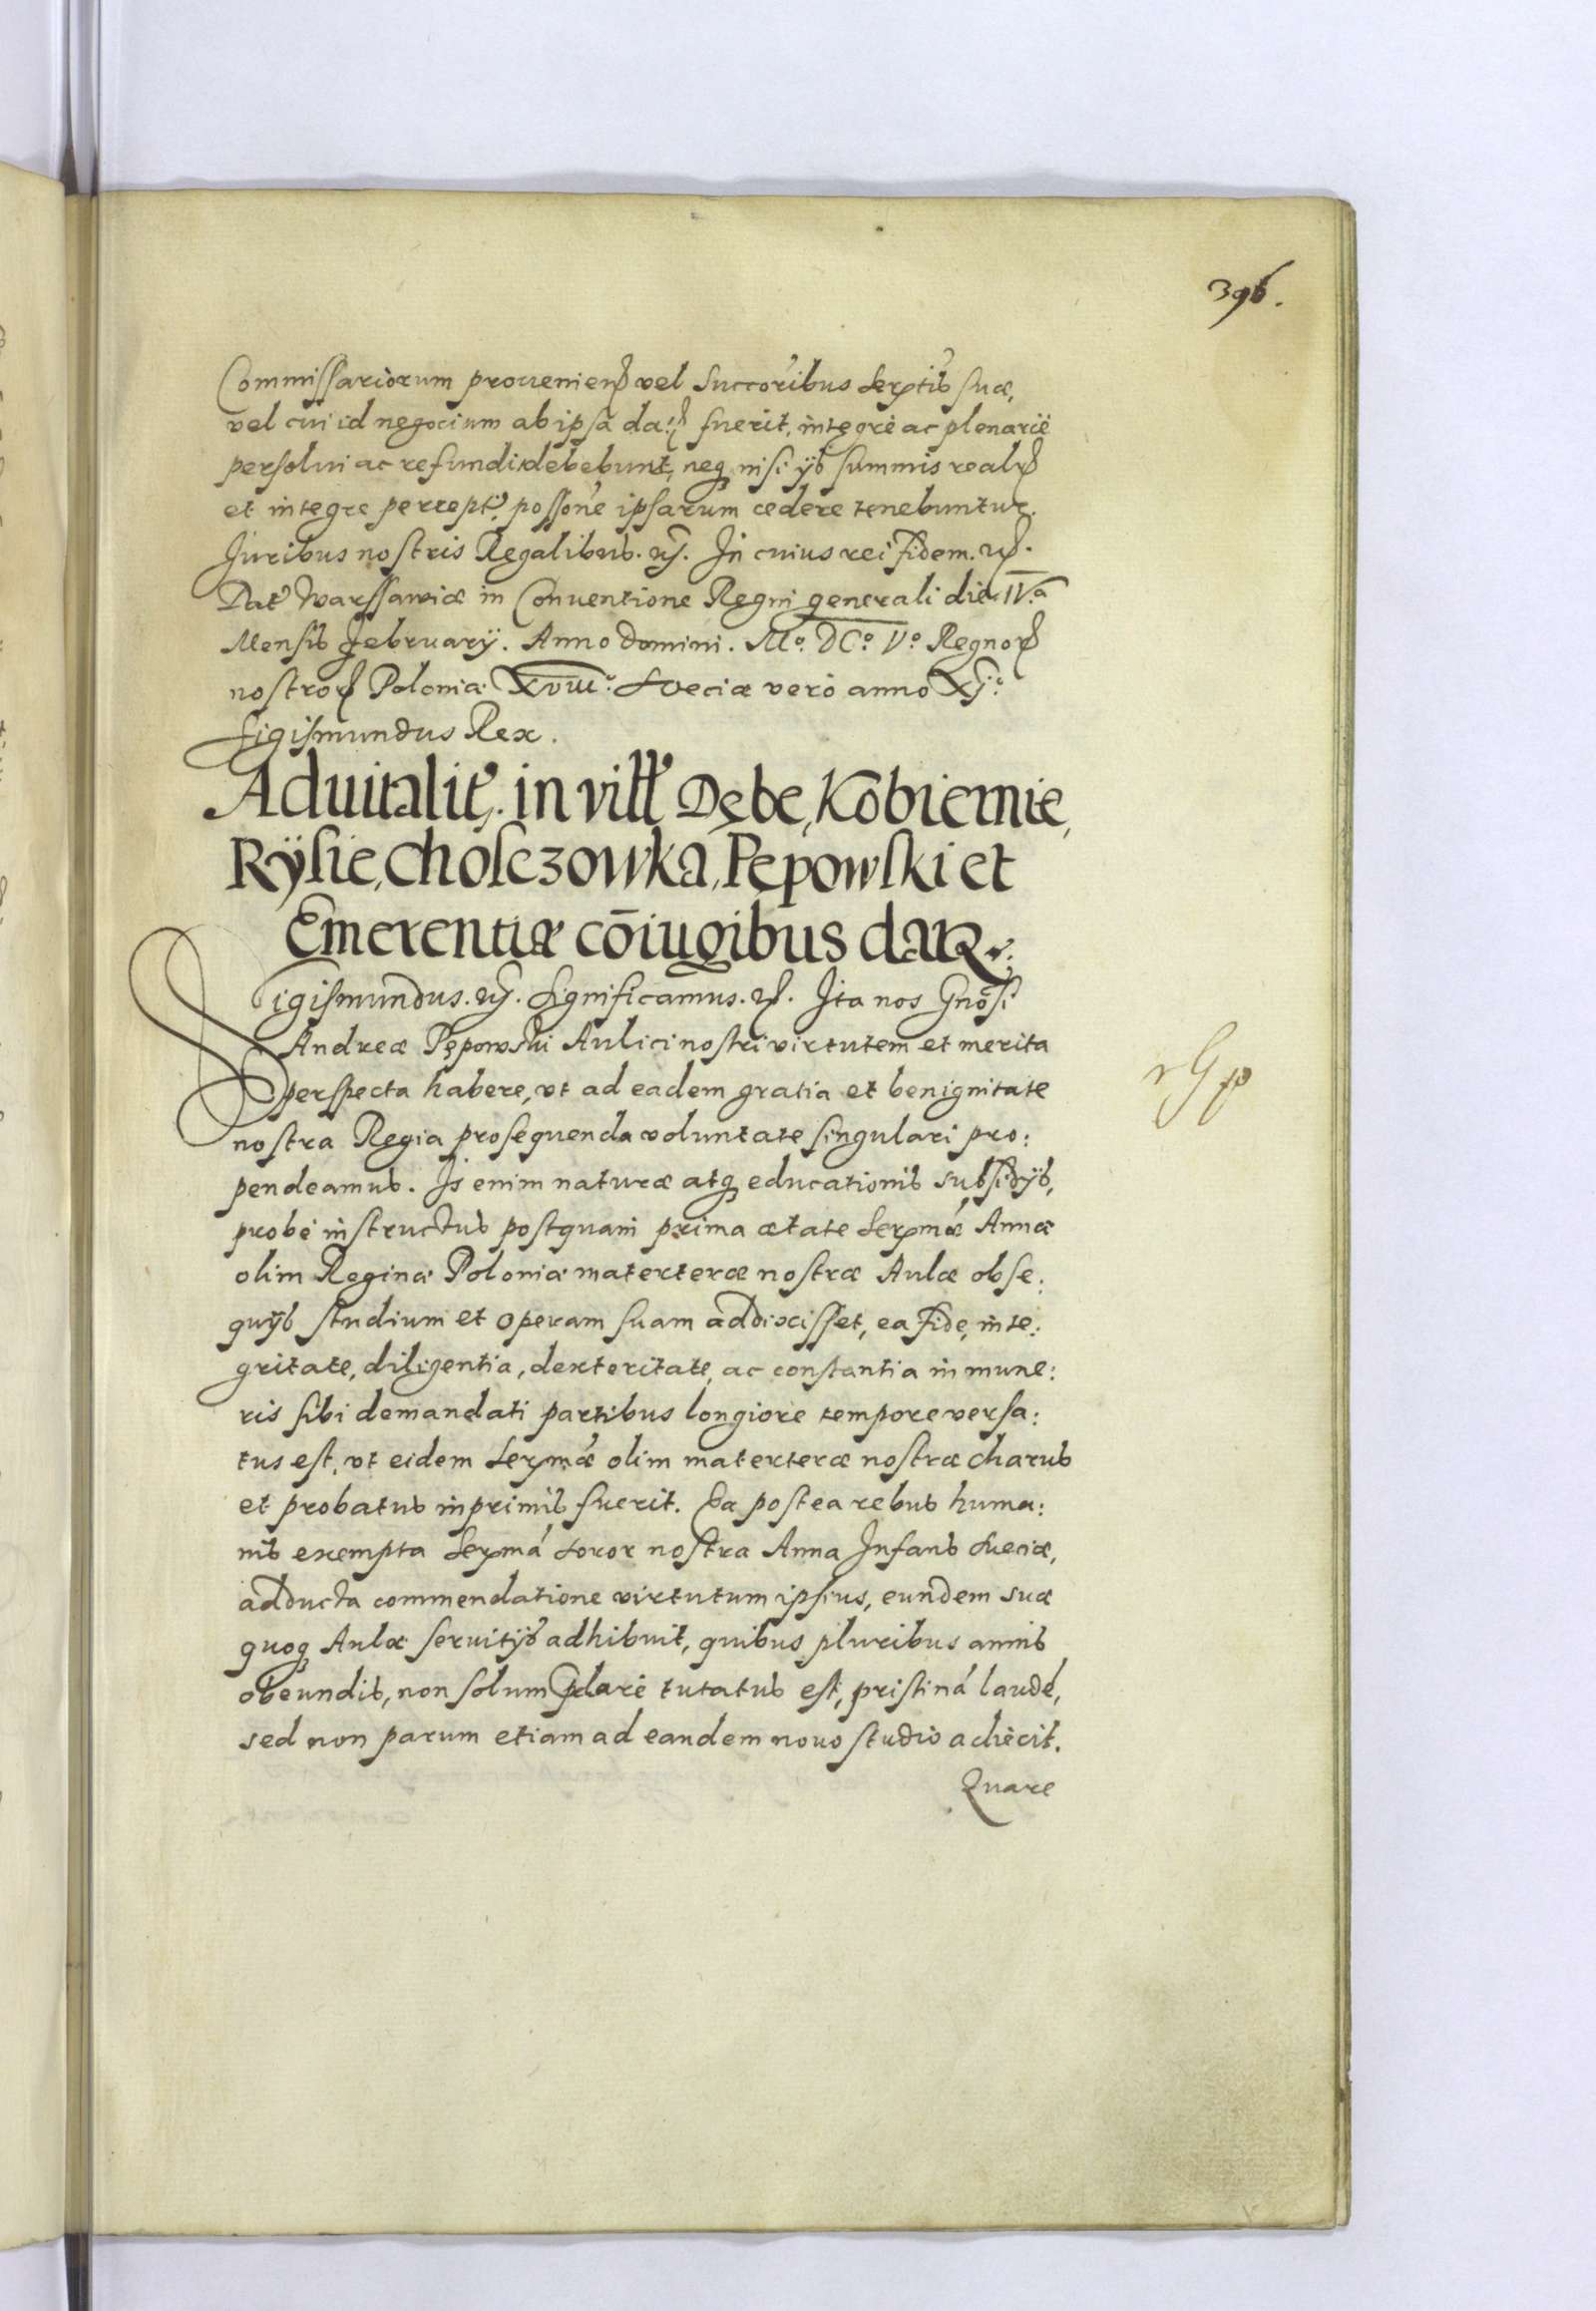 396.
Commissariorum prouenien vel Succoribus Serptis suæ,
vel cui id negocium ab ipsa dat fuerit, integrè ac plenariè
persolui ac refundi debebunt, neq nisi ijs summis real
et integre percept, possone ipsarum cedere tenebuntur.
Juribus nostris Regalibus. etc. In cuius rei fidem. etc.
Dat Warssawiæ in Conuentione Regni generali die IV.a
Mensis February. Anno Domini. Mo. DCo. Vo. Regnor
nostror Poloniæ XVIII.o Sveciæ verò anno XI.o
Sigismundus Rex.
Aduitalit. in vill Dębe, Kobiernie,
Rÿsie, Cholsczowka, Pępowski et
Emerentiæ cōiugibus datur.
Sigismundus. etc. Significamus. etc. Ita nos Gnosi
Andreæ Pępowski Aulici nostri virtutem et merita
perspecta habere, vt ad eadem gratia et benignitate
nostra Regia prosequenda voluntate singulari pro:
pendeamus. Is enim naturæ atq educationis subsidijs,
probè instructus postquam prima ætate Serpmæ Annæ
olim Reginæ Poloniæ materteræ nostræ Aulæ obse:
quijs studium et operam suam addixisset, ea fide, inte:
gritate, diligentia, dexteritate, ac constantia in mune:
ris sibi demandati partibus longiore tempore versa:
tus est, vt eidem Serpmæ olim materteræ nostræ charus
et probatus inprimis fuerit. Ea postea rebus huma:
nis exempta Serpma Soror nostra Anna Infans Sueciæ,
adducta commendatione virtutum ipsius, eundem suæ
quoq Aulæ seruitijs adhibuit, quibus pluribus annis
obeundis, non solum tutatus est, pristiná laudé,
sed non parum etiam ad eandem nouo studio adiecit.
Quare